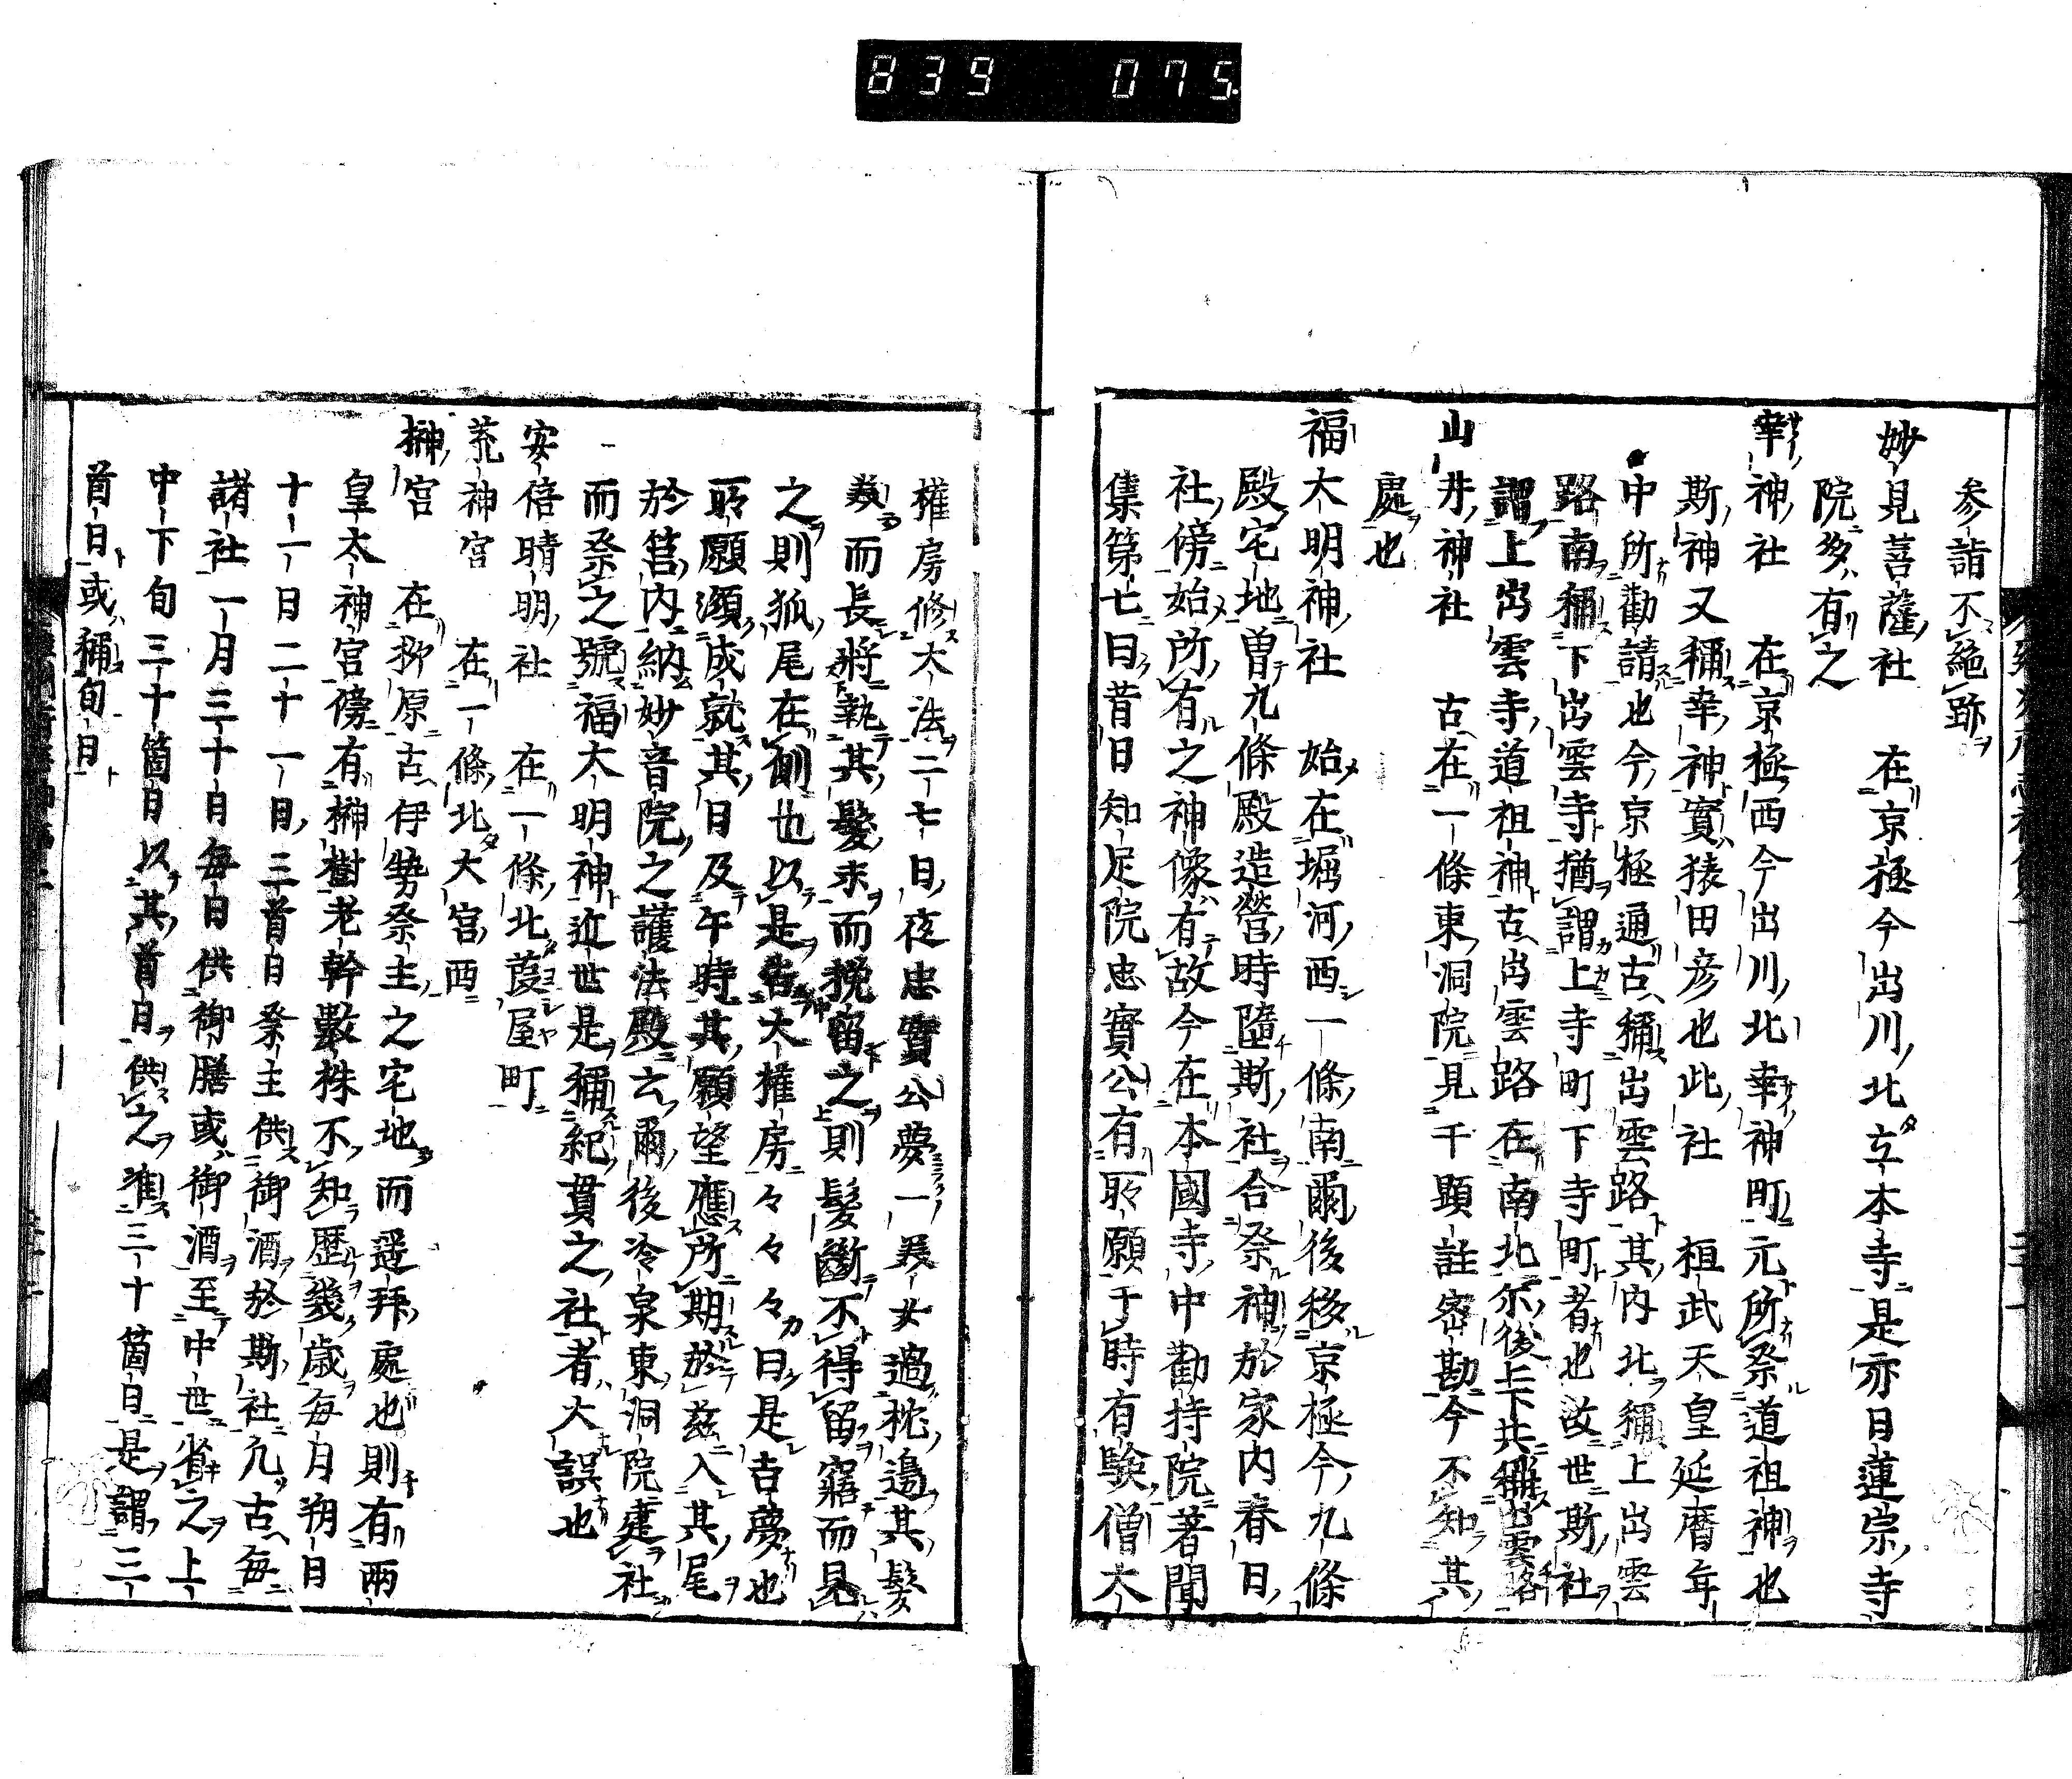 839 075
参詣不絶跡
妙見菩薩社 在京極今出川北立本寺是亦日蓮宗寺
院多有之
幸神社 在京極西今出川北幸神町元所祭道祖神也
斯神又稱幸神實猿田彦也此社 桓武天皇延暦年
中所勸請也今京極通古稱出雲路其内北稱上出雲
路南稱下出雲寺猶謂上寺町下寺町者也故世斯社
謂上出雲寺道祖神古出雲路在南北尓後上下共稱出雲路
山井神社 古在一條東洞院見千顕註密勘今不知其
處也
福大明神社 始在堀河西一條南爾後移京極今九條
殿宅地曽九條殿造營時隨斯社合祭神於家内春日
社傍始所有之神像有故今在本國寺中勸持院著聞
集第七曰昔日知足院忠實公有所願于時有験僧大
權房修大法二七日夜忠實公夢一美女過枕邊其髮
美而長將執其髮末而挽留之則髮斷不得留寤而見
之則狐尾在側也以是告大權房々々々曰是吉夢也
所願須成就其日及午時其願望應所期於茲入其尾
於筥内納妙音院之護法殿云爾後冷泉東洞院建社
而祭之號福大明神近世是稱紀貫之社者大誤也
安倍晴明社 在一條北葭屋町
荒神宮 在一條北大宮西
榊宮 在柳原古伊勢祭主之宅地而遥拜處也則有兩
皇太神宮傍有榊樹老幹數株不知歴幾歳毎月朔日
十一日二十一日三首日祭主供御酒於斯社凡古毎
諸社一月三十日毎日供御膳或御酒至中世省之上
中下旬三十箇日以其首日供之准三十箇日是謂三
首日或稱旬日